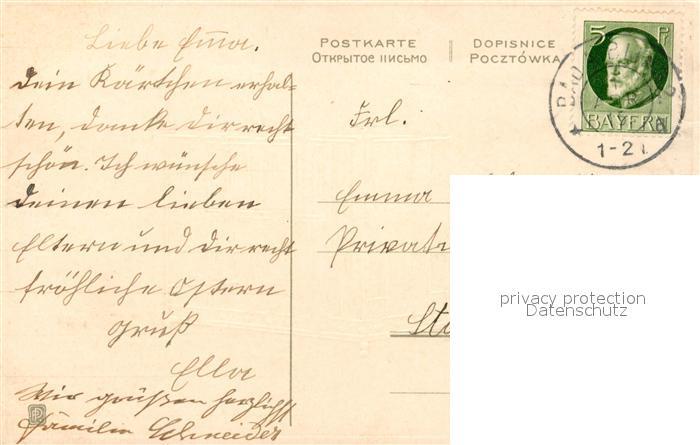 Liebe Emma.
Dein Kärtchen erhal-
ten, danke Dir recht
schön. Ich wünsche
Deinen lieben
Eltern und Dir recht
fröhliche Ostern
Gruß
Ella
Wir grüßen herzlichst
Familie Schneider
POSTKARTE
ОТКРЫТОЕ ПИСЬМО
DOPISNICE
POCZTÓWKA
5 Pf
BAYERN
BAD
1-2
Frl.
Emma
Privat
privacy protection
Datenschutz